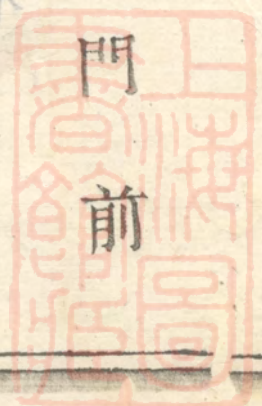 門前
上海圖
書館藏